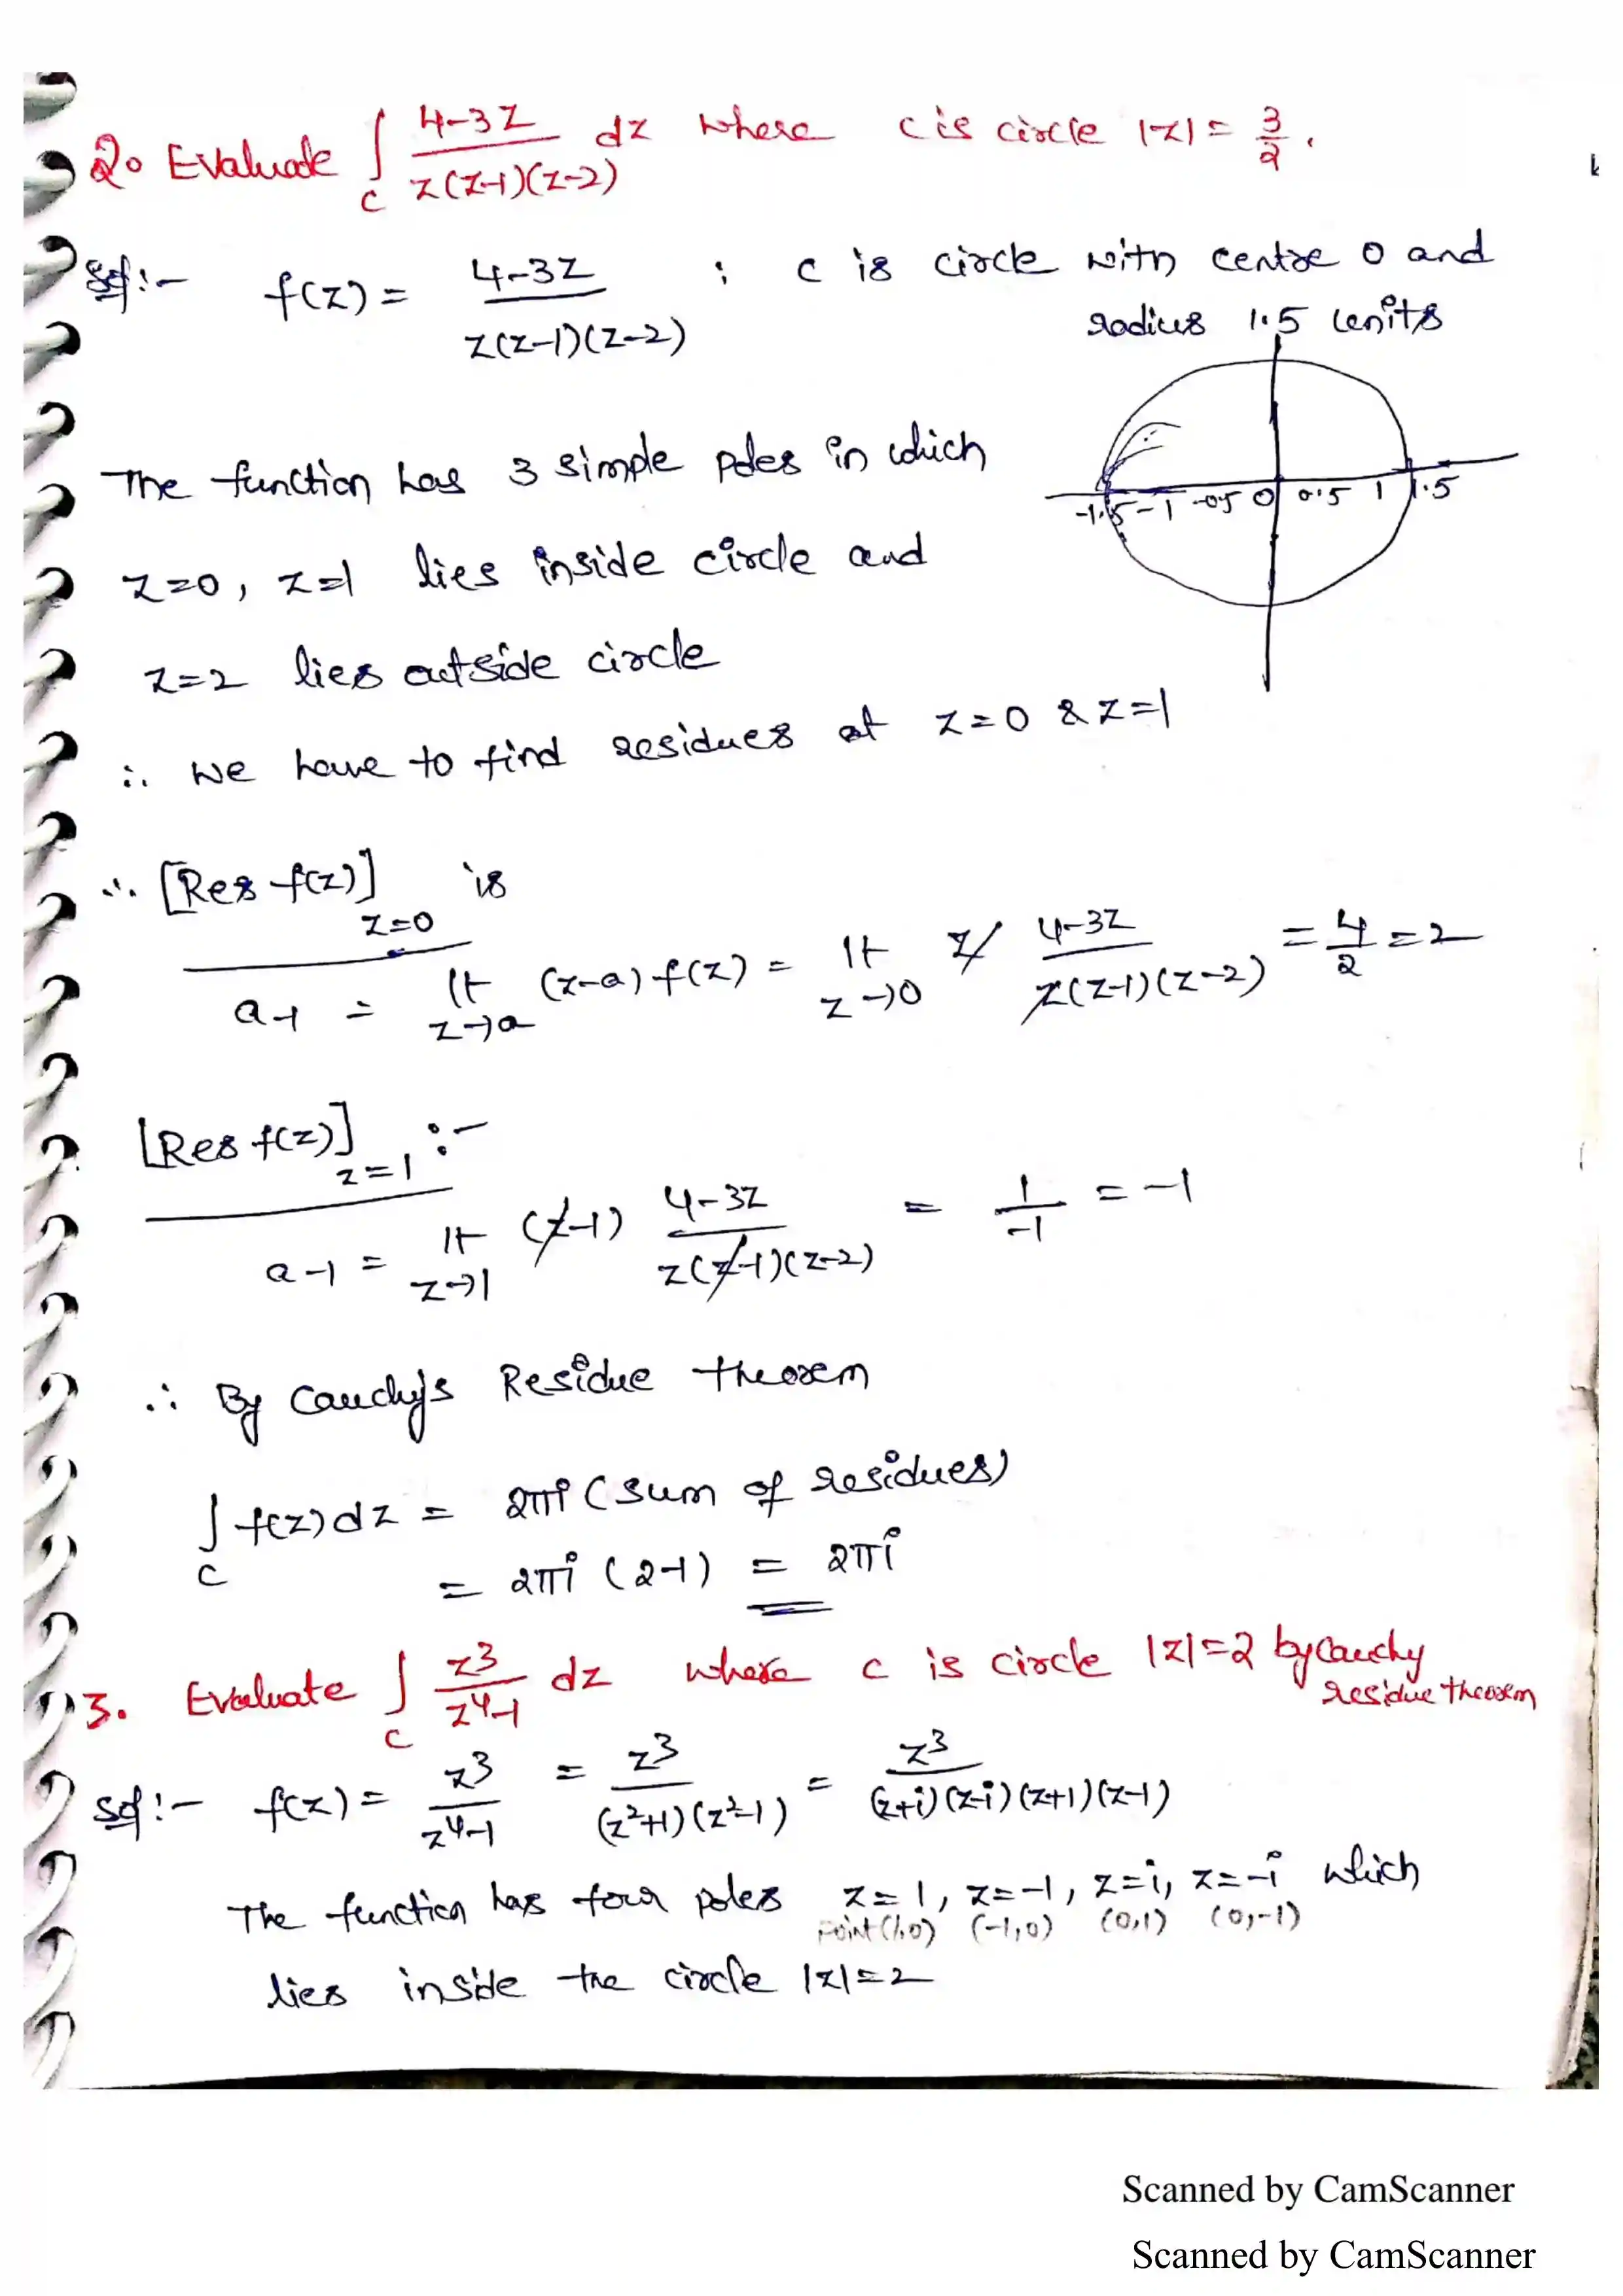 2. Evaluate ∫_C (4-3z)/(z(z-1)(z-2)) dz where c is circle |z| = 3/2.
Sol:- f(z) = (4-3z)/(z(z-1)(z-2)) ; c is circle with centre 0 and
radius 1.5 units
The function has 3 simple poles in which
-1.5 -1 -0.5 0 0.5 1 1.5
z=0, z=1 lies inside circle and
z=2 lies outside circle
∴ we have to find residues at z=0 & z=1
∴ [Res f(z)]_{z=0} is
a-1 = lt_{z→a} (z-a) f(z) = lt_{z→0} z (4-3z)/(z(z-1)(z-2)) = 4/2 = 2
[Res f(z)]_{z=1} :-
a-1 = lt_{z→1} (z-1) (4-3z)/(z(z-1)(z-2)) = 1/-1 = -1
∴ By Cauchy's Residue theorem
∫_C f(z) dz = 2πi (sum of residues)
= 2πi (2-1) = 2πi
3. Evaluate ∫_C z³/(z⁴-1) dz where c is circle |z|=2 by Cauchy
residue theorem
Sol:- f(z) = z³/(z⁴-1) = z³/((z²+1)(z²-1)) = z³/((z+i)(z-i)(z+1)(z-1))
The function has four poles z=1, z=-1, z=i, z=-i which
point (1,0) (-1,0) (0,1) (0,-1)
lies inside the circle |z|=2
Scanned by CamScanner
Scanned by CamScanner